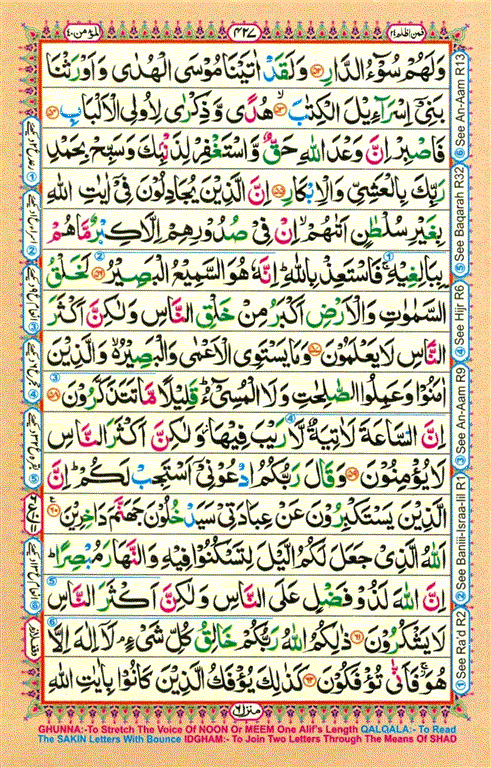 المؤمن ٤٠
٤٢٧
فمن اظلم ٢٤
وَلَهُمْ سُوْٓءُ الدَّارِ ﴿۵۲﴾ وَلَقَدْ اٰتَيْنَا مُوْسَى الْهُدٰى وَاَوْرَثْنَا
بَنِيْٓ اِسْرَآءِيْلَ الْكِتٰبَ ﴿۵۳﴾ هُدًى وَّذِكْرٰى لِاُولِى الْاَلْبَابِ ﴿۵۴﴾
فَاصْبِرْ اِنَّ وَعْدَ اللّٰهِ حَقٌّ وَّاسْتَغْفِرْ لِذَنْۢبِكَ وَسَبِّحْ بِحَمْدِ
رَبِّكَ بِالْعَشِيِّ وَالْاِبْكَارِ ﴿۵۵﴾ اِنَّ الَّذِيْنَ يُجَادِلُوْنَ فِيْٓ اٰيٰتِ اللّٰهِ
بِغَيْرِ سُلْطٰنٍ اَتٰىهُمْ اِنْ فِيْ صُدُوْرِهِمْ اِلَّا كِبْرٌ مَّا هُمْ
بِبَالِغِيْهِ فَاسْتَعِذْ بِاللّٰهِ اِنَّهٗ هُوَ السَّمِيْعُ الْبَصِيْرُ ﴿۵۶﴾ لَخَلْقُ
السَّمٰوٰتِ وَالْاَرْضِ اَكْبَرُ مِنْ خَلْقِ النَّاسِ وَلٰكِنَّ اَكْثَرَ
النَّاسِ لَا يَعْلَمُوْنَ ﴿۵۷﴾ وَمَا يَسْتَوِى الْاَعْمٰى وَالْبَصِيْرُ وَالَّذِيْنَ
اٰمَنُوْا وَعَمِلُوا الصّٰلِحٰتِ وَلَا الْمُسِيْٓءُ قَلِيْلًا مَّا تَتَذَكَّرُوْنَ ﴿۵۸﴾
اِنَّ السَّاعَةَ لَاٰتِيَةٌ لَّا رَيْبَ فِيْهَا وَلٰكِنَّ اَكْثَرَ النَّاسِ
لَا يُؤْمِنُوْنَ ﴿۵۹﴾ وَقَالَ رَبُّكُمُ ادْعُوْنِيْٓ اَسْتَجِبْ لَكُمْ اِنَّ
الَّذِيْنَ يَسْتَكْبِرُوْنَ عَنْ عِبَادَتِيْ سَيَدْخُلُوْنَ جَهَنَّمَ دَاخِرِيْنَ ﴿۶۰﴾
اَللّٰهُ الَّذِيْ جَعَلَ لَكُمُ الَّيْلَ لِتَسْكُنُوْا فِيْهِ وَالنَّهَارَ مُبْصِرًا
اِنَّ اللّٰهَ لَذُوْ فَضْلٍ عَلَى النَّاسِ وَلٰكِنَّ اَكْثَرَ النَّاسِ
لَا يَشْكُرُوْنَ ﴿۶۱﴾ ذٰلِكُمُ اللّٰهُ رَبُّكُمْ خَالِقُ كُلِّ شَيْءٍ لَآ اِلٰهَ اِلَّا
هُوَ فَاَنّٰى تُؤْفَكُوْنَ ﴿۶۲﴾ كَذٰلِكَ يُؤْفَكُ الَّذِيْنَ كَانُوْا بِاٰيٰتِ اللّٰهِ
منزل ٦
① See Ra'd R2
② See Baniii-Israa-iil R1
③ See An-Aam R9
④ See Hijr R6
⑤ See Baqarah R32
⑥ See An-Aam R13
GHUNNA:-To Stretch The Voice Of NOON Or MEEM One Alif's Length QALQALA:- To Read
The SAKIN Letters With Bounce IDGHAM:- To Join Two Letters Through The Means Of SHAD